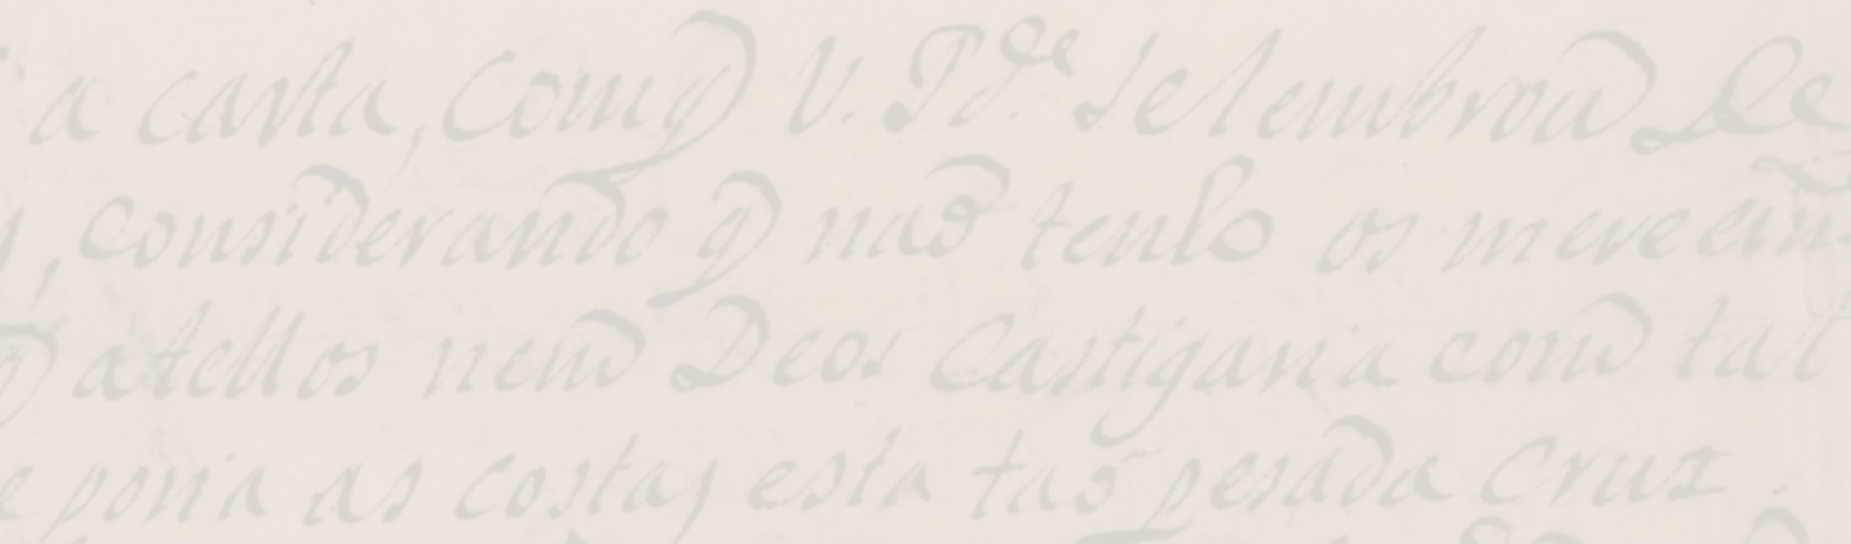 a carta, com q V. P.de se lembrou de
, considerando q naõ tenho os merecim
q atellos nem Deos Castigaria com tal
e poria as costas esta taõ pesada Cruz.